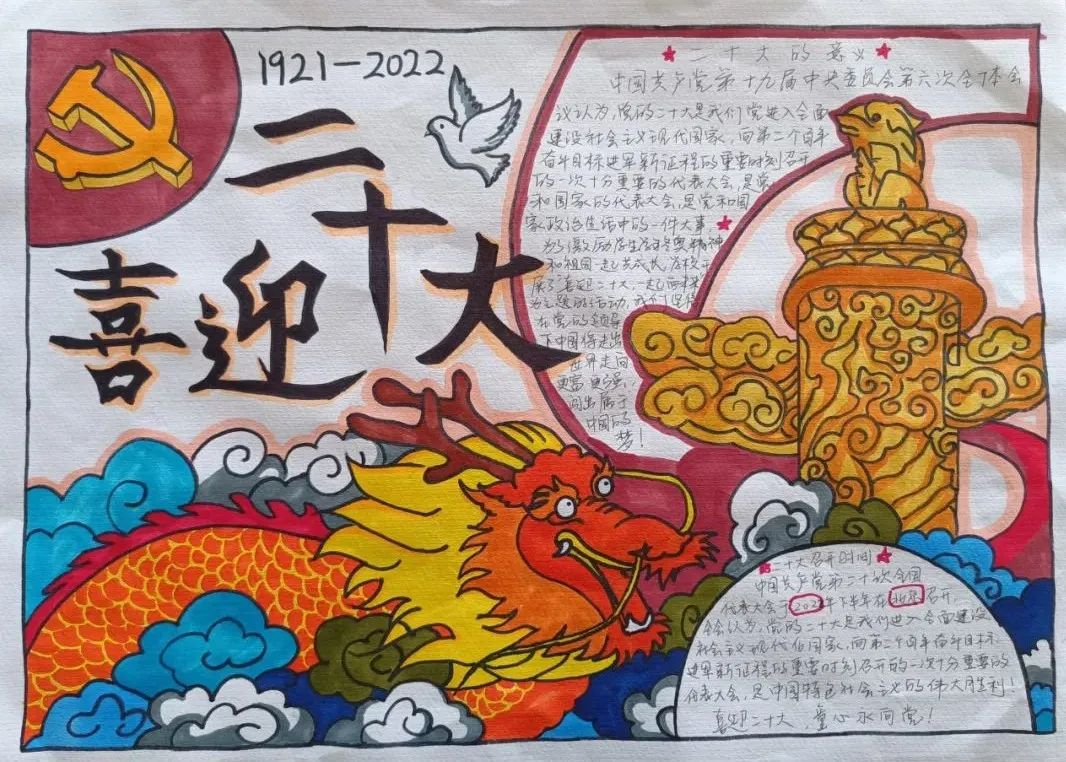 1921-2022
喜迎
二十大
二十大的意义
中国共产党第十九届中央委员会第六次全体会
议认为,党的二十大是我们党进入全面
建设社会主义现代国家,向第二个百年
奋斗目标进军新征程的重要时刻召开
的一次十分重要的代表大会,是党
和国家的代表大会,是党和国
家政治生活中的一件大事,
为激励学生
和祖国一起共成长,
展了"喜迎二十大,一起向未来"
为主题的活动,我们坚信
在党的领导
下中国将走出
世界走向
更富更强,
闯出属于
中国的
梦!
二十大召开时间
中国共产党第二十次全国
代表大会于2022年下半年在北京召开,
全会认为,党的二十大是我们进入全面建设
社会主义现代化国家,向第二个百年奋斗目标
进军新征程的重要时刻召开的一次十分重要的
代表大会,是中国特色社会主义的伟大胜利!
喜迎二十大 童心永向党!